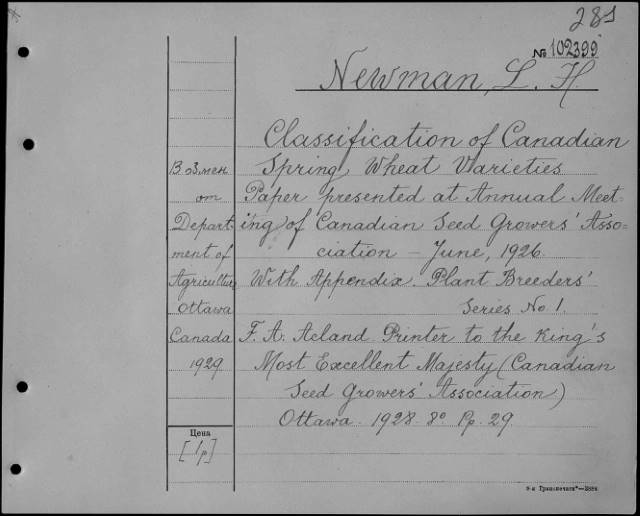 281
№ 102399
Newman, L. H.
Classification of Canadian
Spring Wheat Varieties
Paper presented at Annual Meet-
ing of Canadian Seed Growers' Asso-
ciation – June, 1926.
With Appendix. Plant Breeders'
Series No 1.
F. A. Acland Printer to the King's
Most Excellent Majesty (Canadian
Seed Growers' Association)
Ottawa. 1928. 8º. Pp. 29.
В обмен
от
Depart-
ment of
Agriculture
Ottawa
Canada
1929
Цена
[1р]